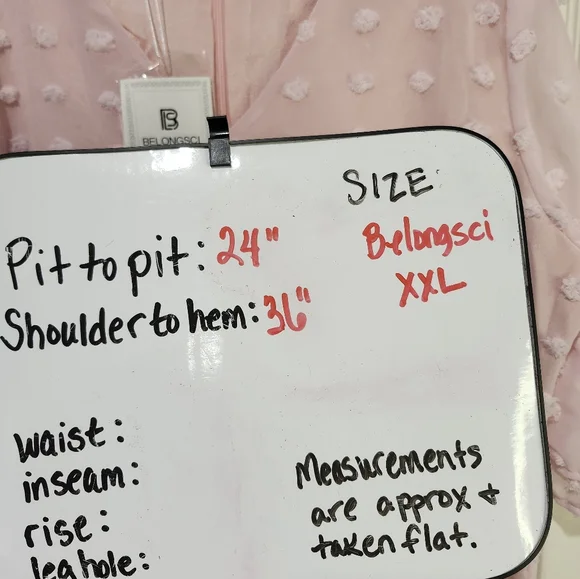 BS
BELONGSCI
SIZE
Pit to pit: 24"
Belongsci
XXL
Shoulder to hem: 36"
waist:
inseam:
rise:
leg hole:
Measurements
are approx +
taken flat.